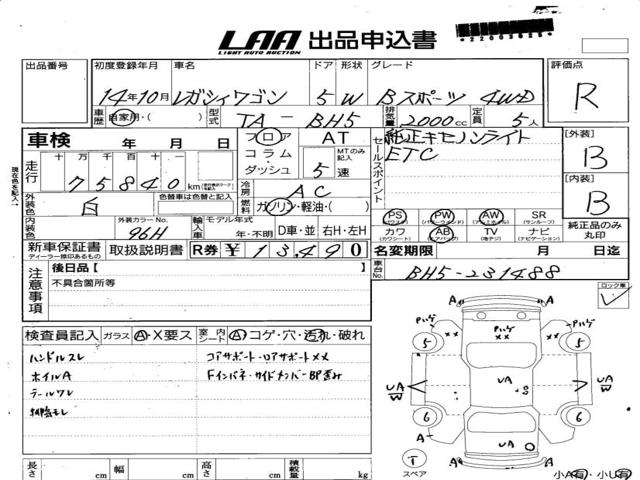 LAA 出品申込書
LIGHT AUTO AUCTION
出品番号 初度登録年月 車名 ドア 形状 グレード 評価点
14年10月 レガシィワゴン 5 W Bスポーツ 4WD R
車歴 自家用・( ) 型式 TA - BH5 排気量 2000cc 定員 5人
車検 年 月 日 フロア コラム・ダッシュ AT MTのみ記入 5速
セールスポイント 純正キセノンライト
ETC
[外装] B
[内装] B
走行 十 万 千 百 十 km
7 5 8 4 0
冷房 AC
外装色 白 色替車は色替と記入 燃料 ガソリン・軽油・( )
PS PW AW SR (サンルーフ)
カワ (カワシート) AB (エアバック) TV ナビ (ナビゲーション)
純正品のみ丸印
内装色 外装カラーNo. 96H 輸入車 モデル年式 年・不明 D車・並 右H・左H
新車保証書 ディーラー捺印あるもの 取扱説明書 R券 ¥ 13,490
名変期限 月 日迄
車台No. BH5-231488
注意事項 後日品 [ ]
不具合箇所等
ロック車
検査員記入 ガラス A・X要ス 室内 シート A コゲ・穴・汚れ・破れ
ハンドルスレ コアサポート・ロアサポートXX
ホイルA Fインパネ・サイドメンバーBP歪み
テールワレ
現在色を記入。
A A
Pハゲ Pハゲ
XX XX
5 5
UA
W
UA
S
UA
W
6 6
A UA A
T
スペア
A A
長さ cm 幅 cm 高さ cm 積載量 kg
小A有・小U有